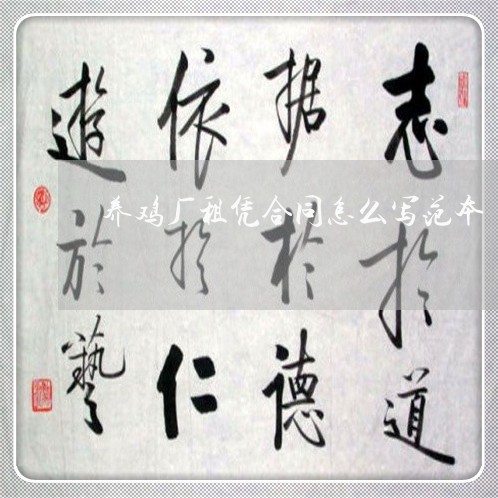 志於道
据於德
依於仁
遊於藝
养鸡厂租凭合同怎么写范本